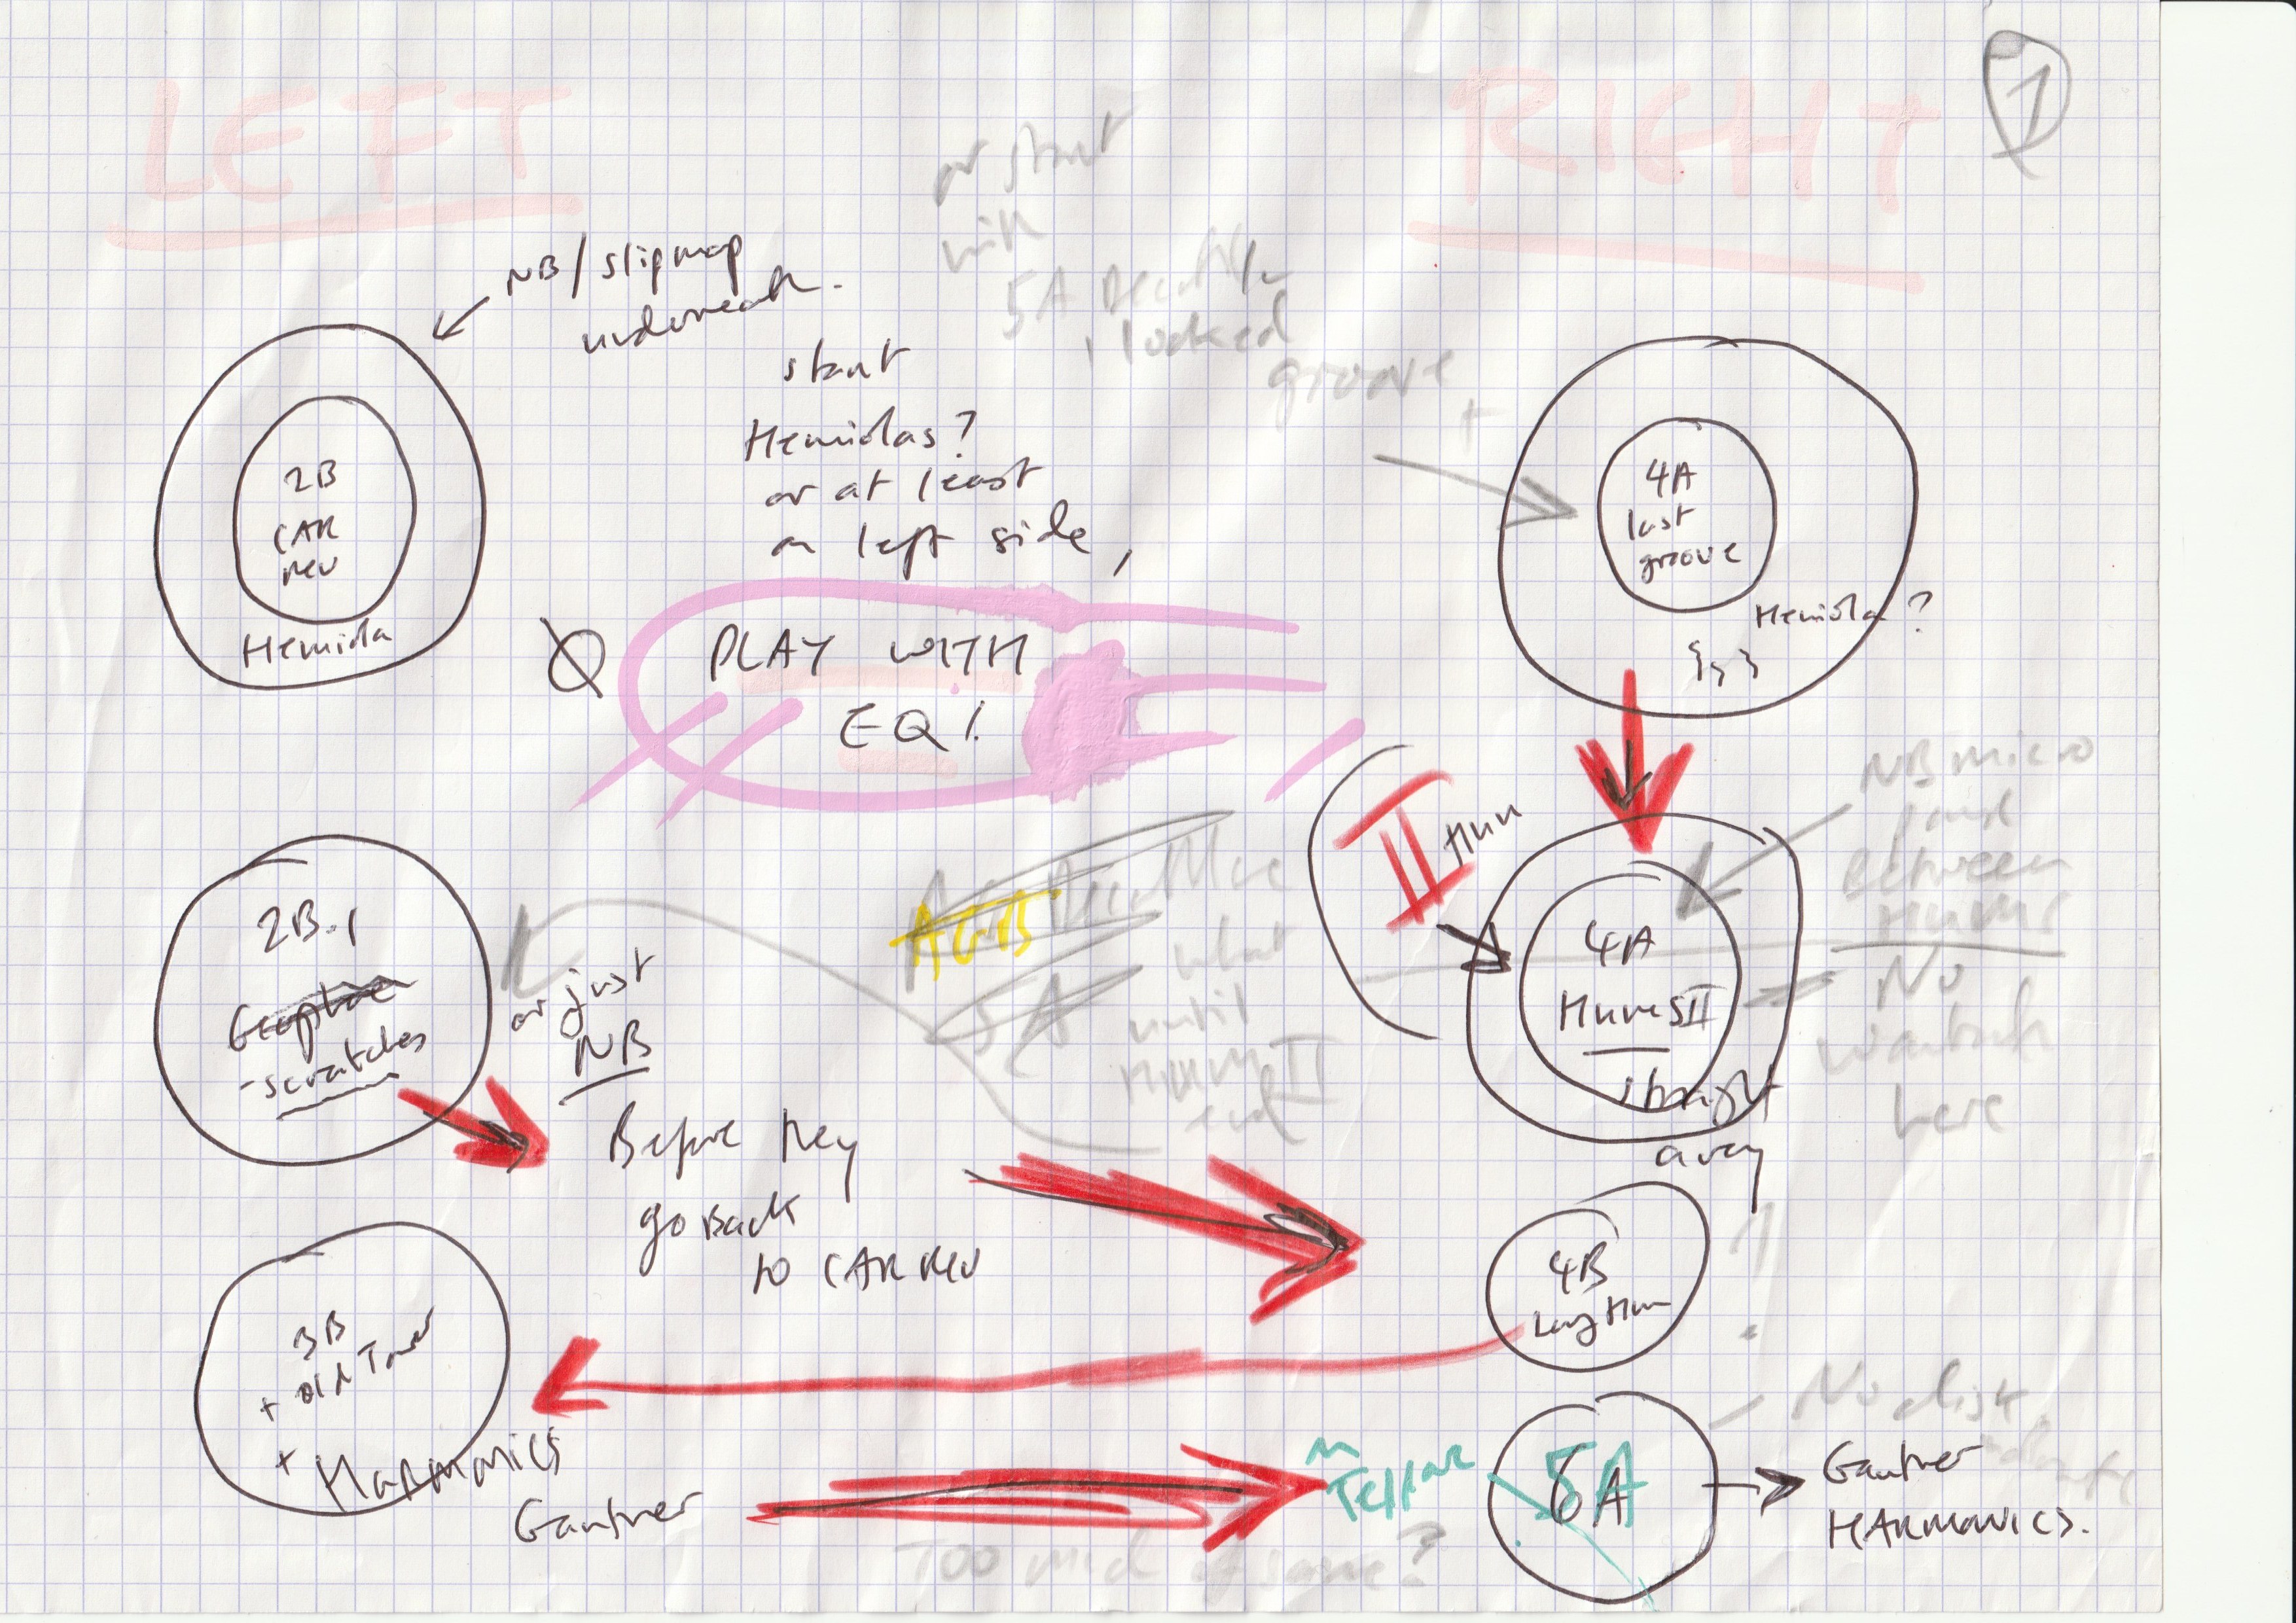 LEFT
RIGHT
1
or start
with
5A
locked
groove
+
NB / slipmap
underneath.
start
Hemiolas?
or at least
on left side,
2B
CAR
rev
Hemiola
4A
last
groove
Hemiola ?
PLAY WITH
EQ!
NB micro
between
HUMS
No
here
II
Hum
4A
HumSII
straight
away
2B.1
- scratches
or just
NB
AGB
5A
what
until
HUM II
end
Before they
go Back
to CAR REV
4B
Long Hum
3B
+ old Toner
+ HARMONICS
Gautner
5A
6A
No disk
Gautner
HARMONICS.
Too much of same?